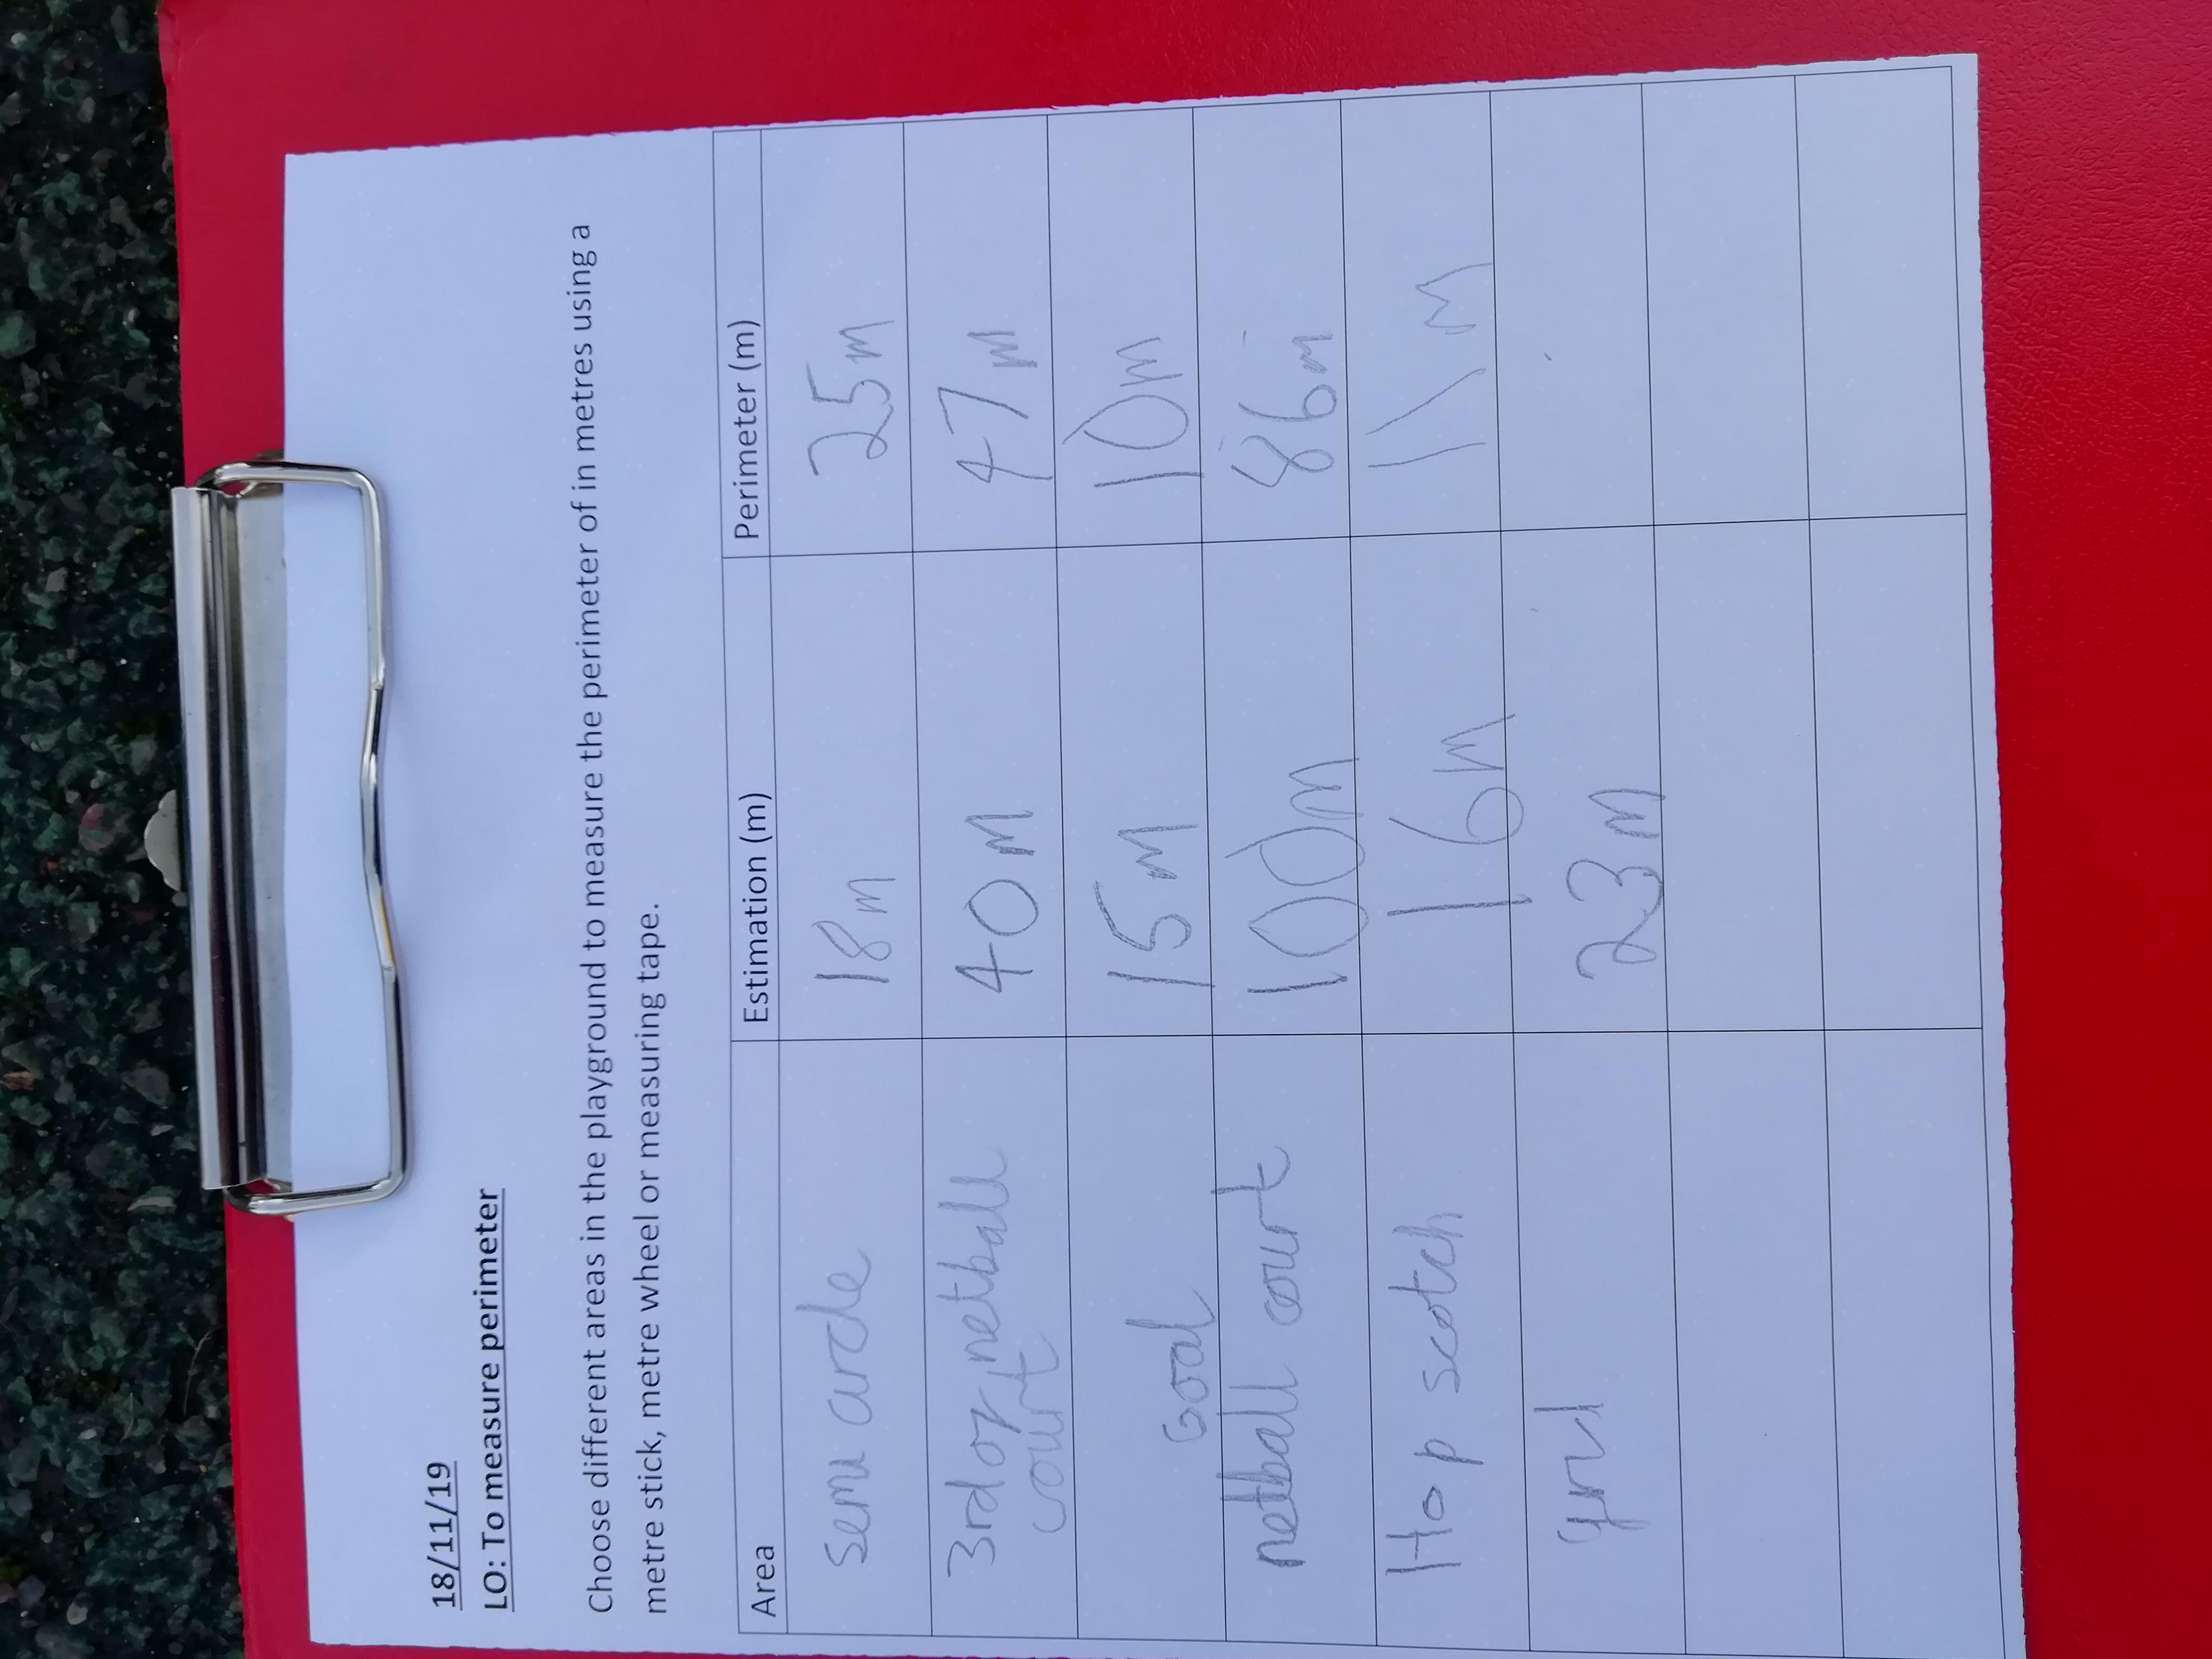 18/11/19
LO: To measure perimeter
Choose different areas in the playground to measure the perimeter of in metres using a
metre stick, metre wheel or measuring tape.
Area Estimation (m) Perimeter (m)
Semi circle 18m 25m
3rd of netball
court 40m 47m
Goal 15m 10m
netball court 100m 86m
Hop scotch 16m 11m
23m